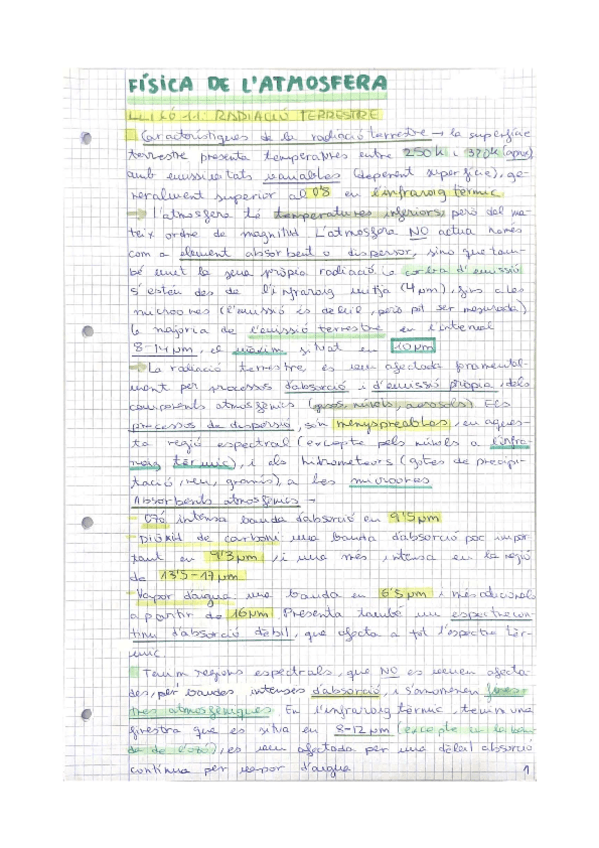 FÍSICA DE L'ATMOSFERA
LLIÇÓ 11: RADIACIÓ TERRESTRE
Característiques de la radiació terrestre → la superfície
terrestre presenta temperatures entre 250k i 320k (aprox)
amb emissivitats variables (depenent superfície), ge-
neralment superior al 0'8 en l'infraroig tèrmic.
→ l'atmosfera té temperatures inferiors, però del ma-
teix ordre de magnitud. L'atmosfera NO actua només
com a element absorbent o dispersor, sino que tam-
bé emet la seva pròpia radiació. La corba d'emissió
s'estén des de l'infraroig mitjà (4 μm), fins a les
microones (l'emissió és dèbil, però pot ser mesurada)
la majoria de l'emissió terrestre en l'interval
8-14 μm, el màxim situat en 10 μm
→ La radiació terrestre es veu afectada fonamental-
ment per processos d'absorció i d'emissió pròpia, dels
components atmosfèrics (gasos, núvols, aerosols). Els
processos de dispersió, són menyspreables, en aques-
ta regió espectral (excepte pels núvols a l'infra-
roig tèrmic), i els hidrometeors (gotes de precipi-
tació, neu, granís), a les microones
Absorbents atmosfèrics →
- Ozó: intensa banda d'absorció en 9'5 μm
- Diòxid de carboni: una banda d'absorció poc impor-
tant en 9'3 μm, i una més intensa en la regió
de 13'5-17 μm
- Vapor d'aigua: una banda en 6'3 μm i més addicionals
a partir de 16 μm. Presenta també un espectre con-
tinu d'absorció dèbil, que afecta a tot l'espectre tèr-
mic.
Tenim regions espectrals, que NO es veuen afecta-
des, per bandes intenses d'absorció, i s'anomenen fines-
tres atmosfèriques. En l'infraroig tèrmic, tenim una
finestra que es situa en 8-12 μm (excepte en la ban-
da de l'ozó), es veu afectada per una dèbil absorció
contínua per vapor d'aigua
1